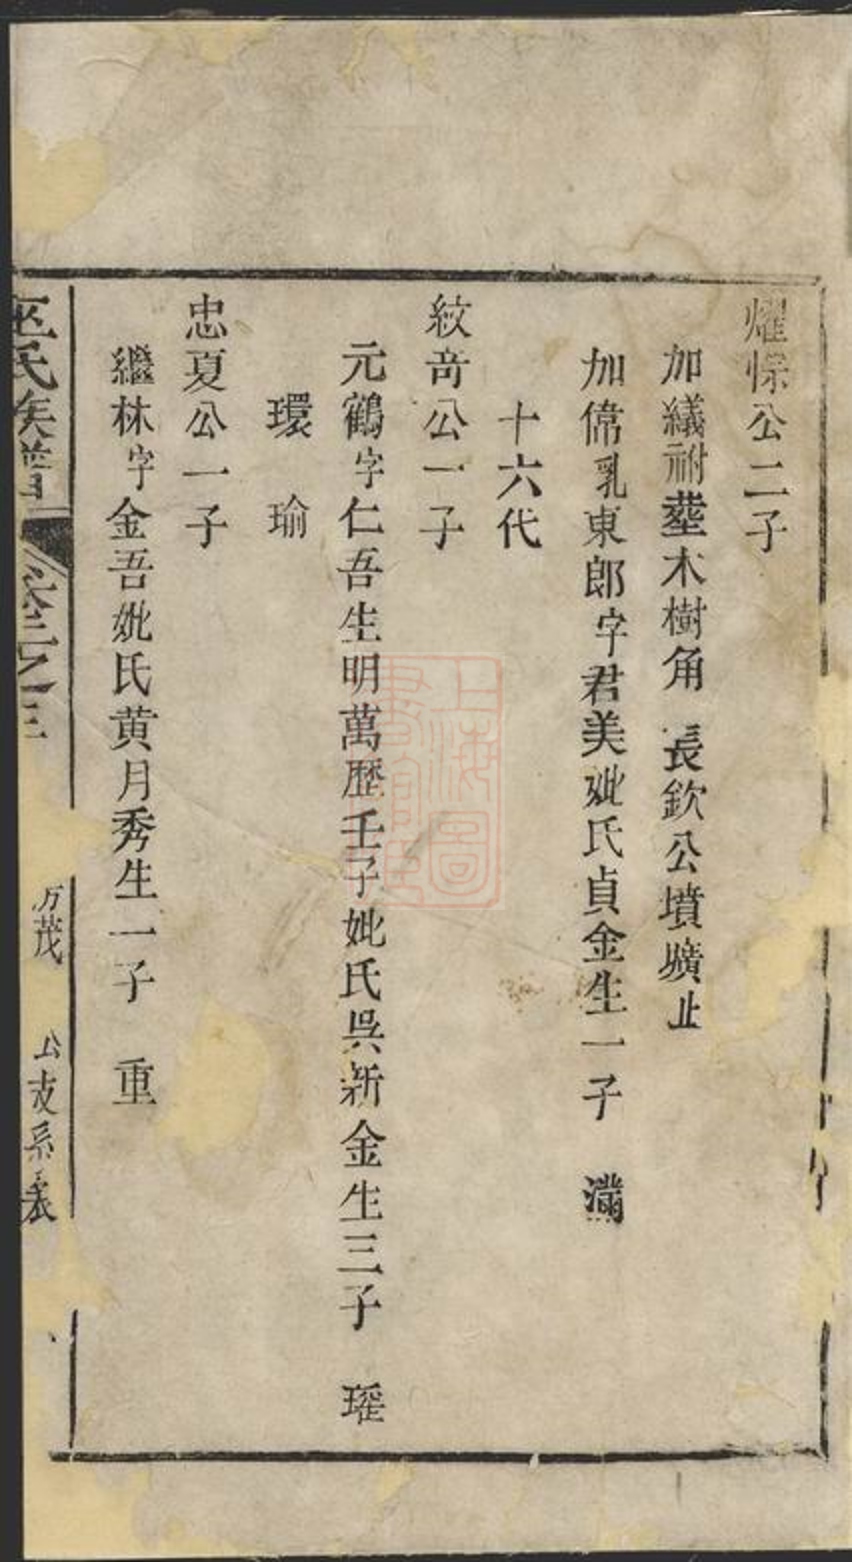 燿悰公二子
加繶祔塟木樹角 長欽公墳壙止
加偉乳東郎字君美妣氏貞金生一子 滿
十六代
紋奇公一子
元鶴字仁吾生明萬歷壬子妣氏吳新金生三子 璀
環 瑜
忠夏公一子
繼林字金吾妣氏黃月秀生一子 重
氏族譜
卷三之一 三
万茂 公支系表
上海圖書館藏